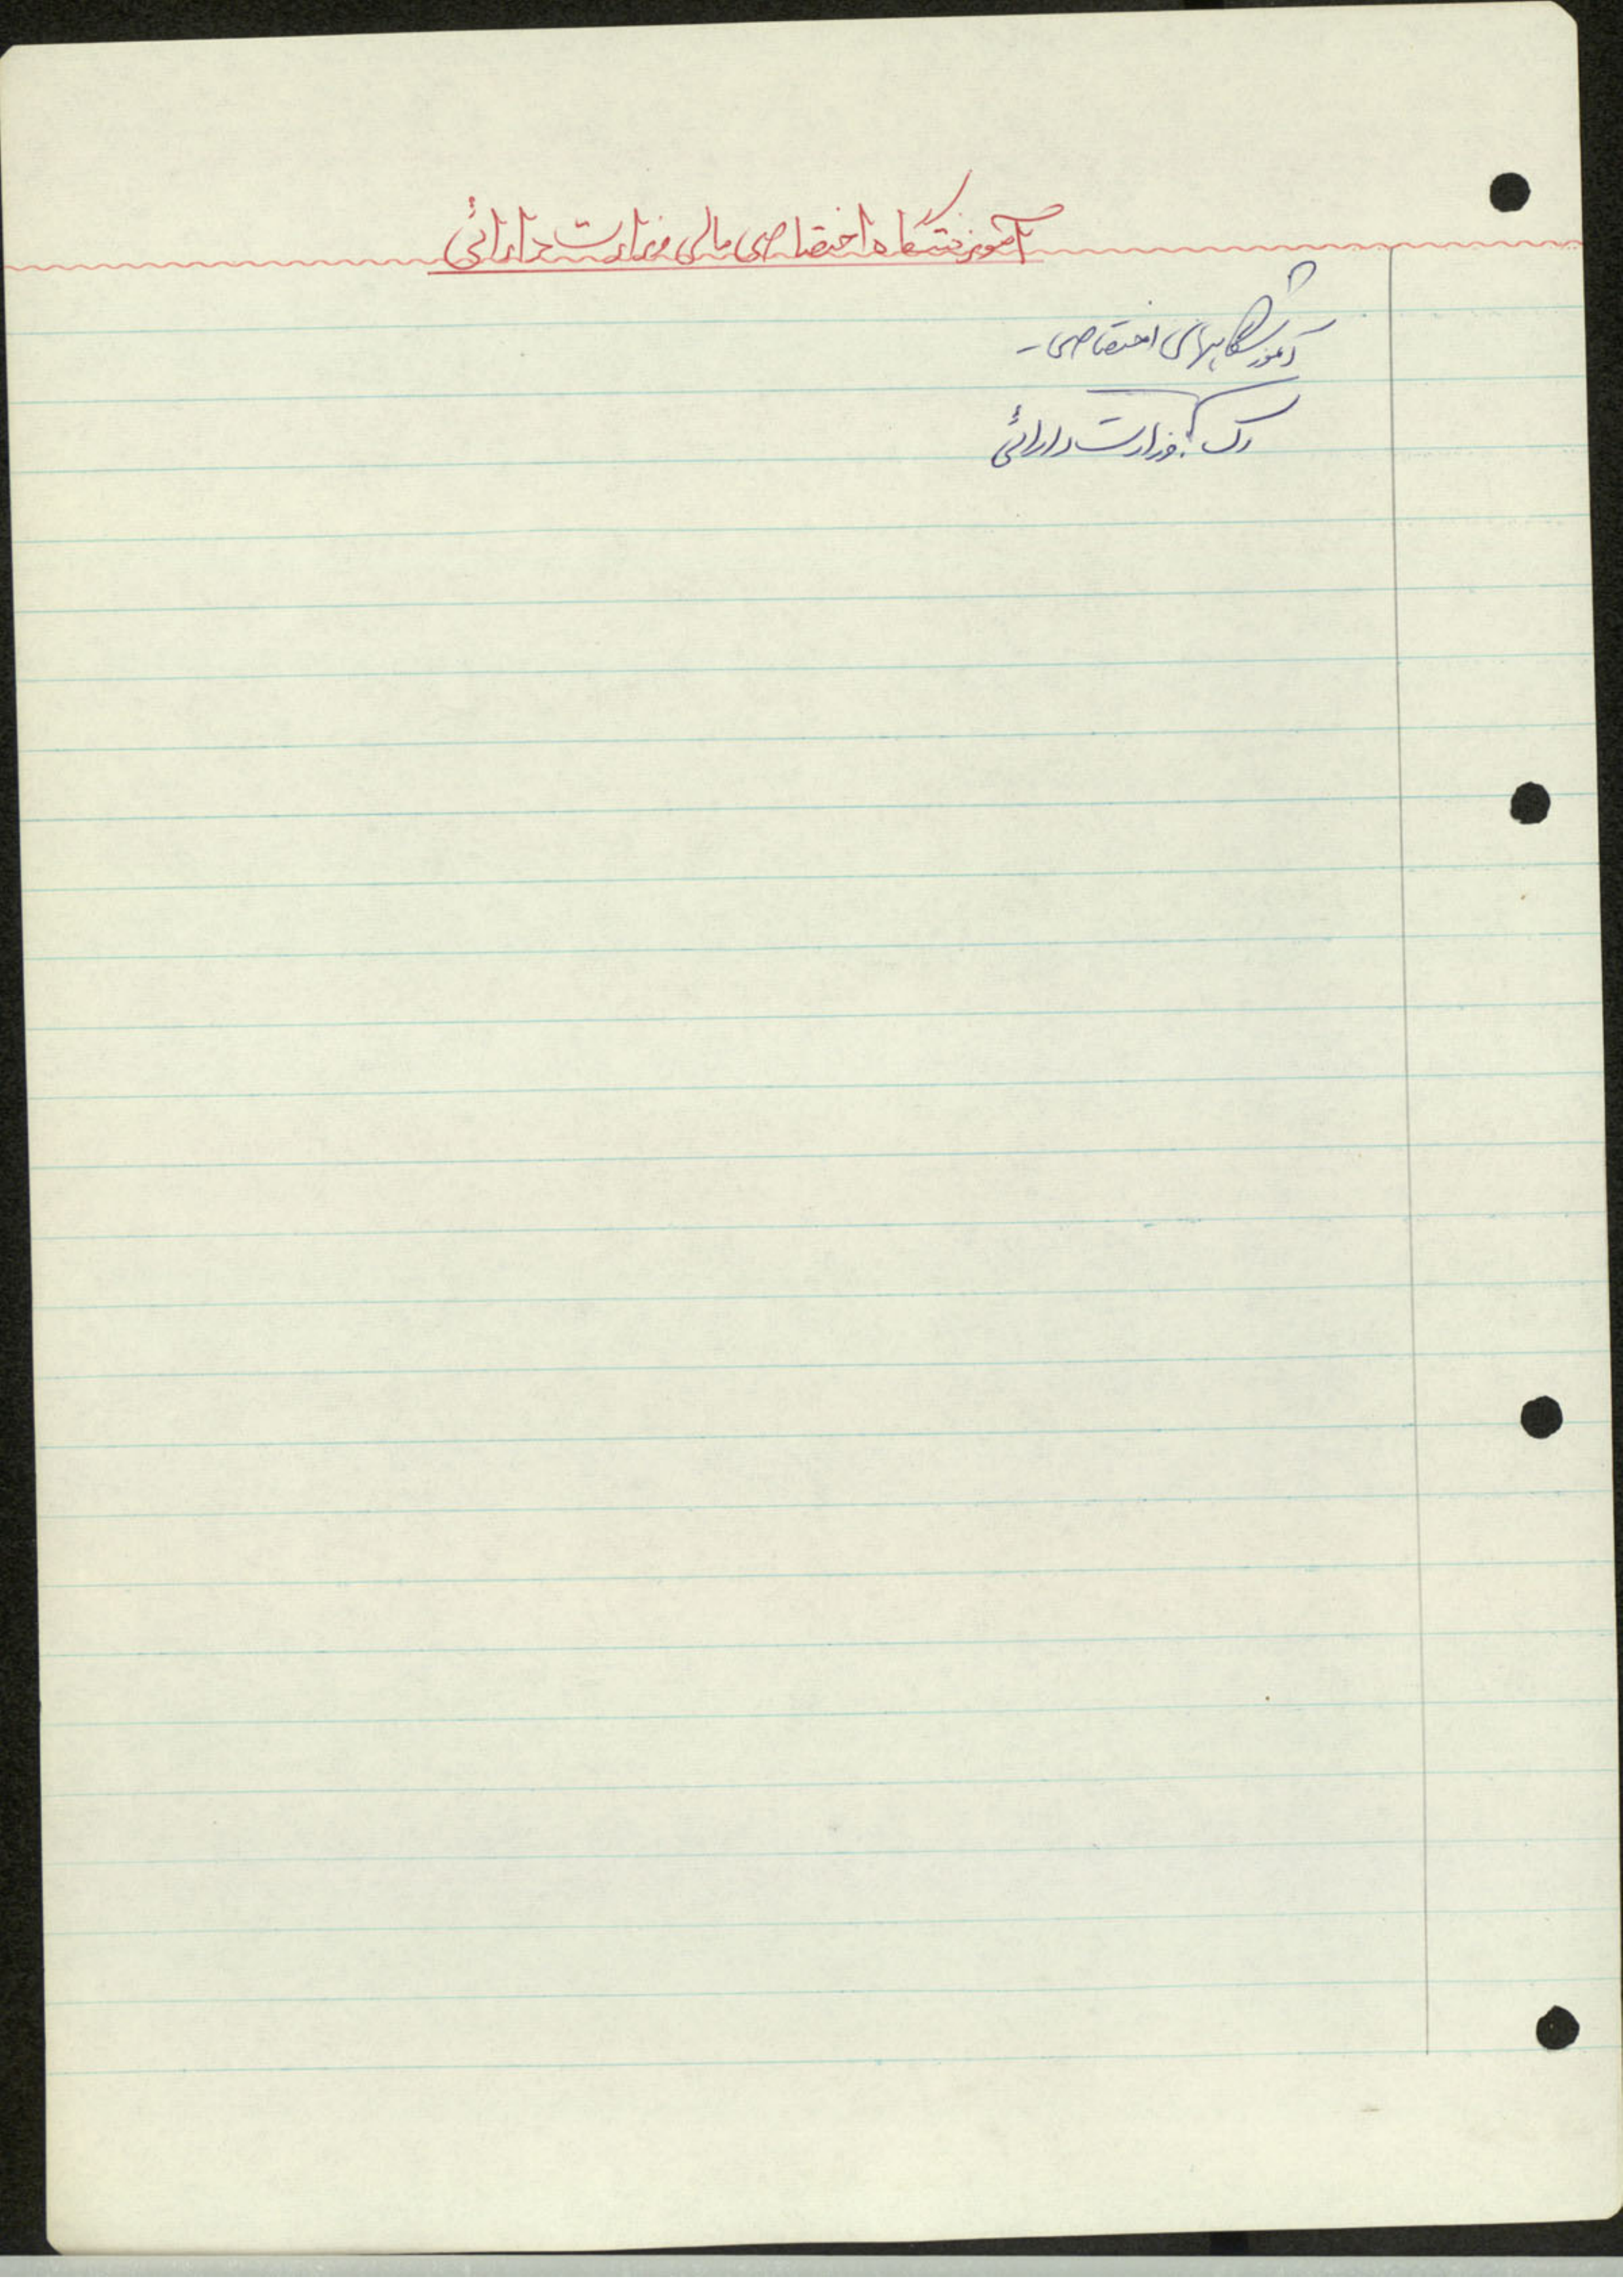 آموزشگاه اختصاصی مالی وزارت دارائی
آموزشگاههای اختصاصی -
رک : وزارت دارائی